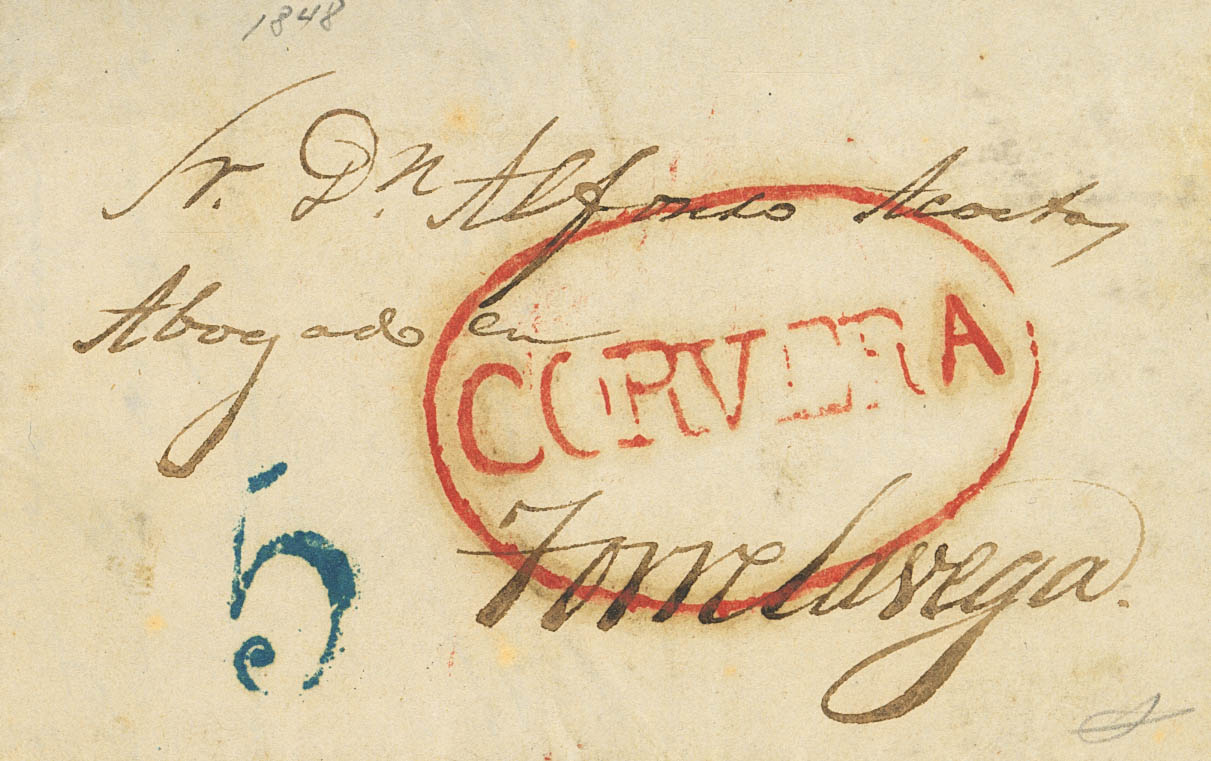 1848
Sr. Dn. Alfonso Acosta,
Abogado en
CORVERA
5
Torrelavega.